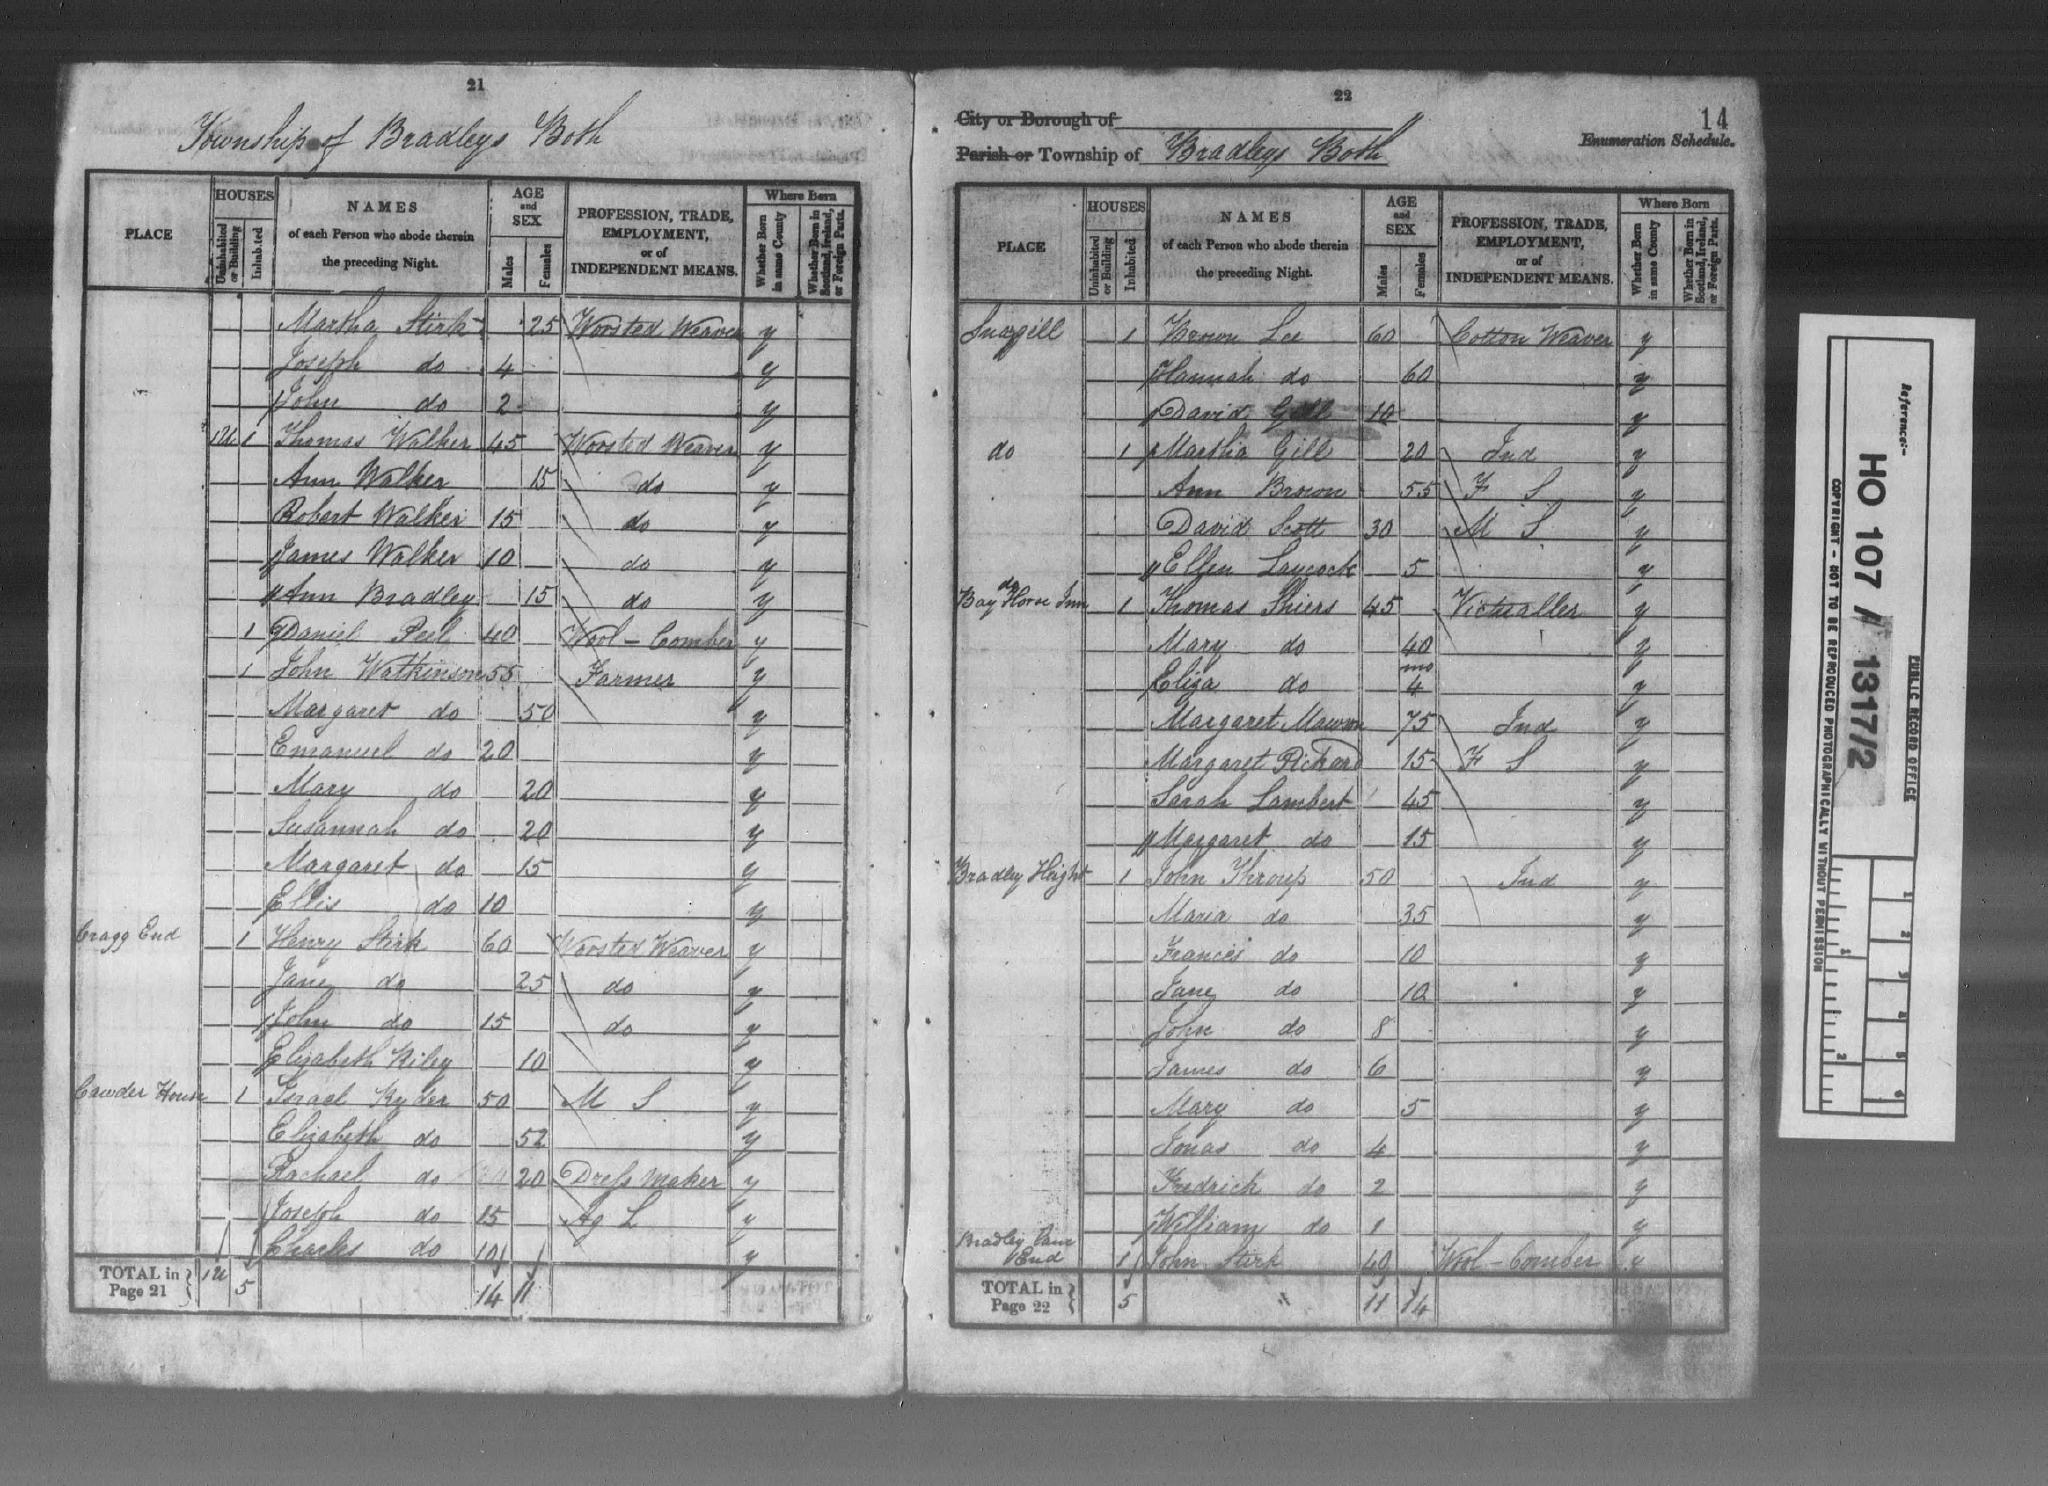 21
Township of Bradleys Both
PLACE
HOUSES
Uninhabited or Building
Inhabited
NAMES
of each Person who abode therein
the preceding Night.
AGE
and
SEX
Males
Females
PROFESSION, TRADE,
EMPLOYMENT,
or of
INDEPENDENT MEANS.
Where Born
Whether Born in same County
Whether Born in Scotland, Ireland, or Foreign Parts.
Martha Stirk 25 Worsted Weaver y
Joseph do 4 y
John do 2 y
1U 1 Thomas Walker 45 Worsted Weaver y
Ann Walker 15 do y
Robert Walker 15 do y
James Walker 10 do y
Ann Bradley 15 do y
1 Daniel Peel 40 Wool-Comber y
1 John Watkinson 55 Farmer y
Margaret do 50 y
Emanuel do 20 y
Mary do 20 y
Susannah do 20 y
Margaret do 15 y
Ellis do 10 y
Cragg End 1 Henry Stirk 60 Worsted Weaver y
Jane do 25 do y
John do 15 do y
Elizabeth Riley 10 y
Cawder House 1 Israel Ryder 50 M S y
Elizabeth do 52 y
Rachael do 20 Dress Maker y
Joseph do 15 Ag L y
Charles do 10 y
TOTAL in Page 21 1U 5 14 11
22
14
City or Borough of
Enumeration Schedule.
Parish or Township of Bradleys Both
PLACE
HOUSES
Uninhabited or Building
Inhabited
NAMES
of each Person who abode therein
the preceding Night.
AGE
and
SEX
Males
Females
PROFESSION, TRADE,
EMPLOYMENT,
or of
INDEPENDENT MEANS.
Where Born
Whether Born in same County
Whether Born in Scotland, Ireland, or Foreign Parts.
Snaygill 1 Brown Lee 60 Cotton Weaver y
Hannah do 60 y
David Gill 10 y
do 1 Martha Gill 20 Ind y
Ann Brown 55 F S y
David Scott 30 M S y
Ellen Laycock 5 y
do
Bay Horse Inn 1 Thomas Shiers 45 Victualler y
Mary do 40 y
Eliza do 4 mo y
Margaret Mawson 75 Ind y
Margaret Pickard 15 F S y
Sarah Lambert 45 y
Margaret do 15 y
Bradley Height 1 John Throup 50 Ind y
Maria do 35 y
Frances do 10 y
Jane do 10 y
John do 8 y
James do 6 y
Mary do 5 y
Jonas do 4 y
Fredrick do 2 y
William do 1 y
Bradley Lane End 1 John Stirk 40 Wool-Comber y
TOTAL in Page 22 5 11 14
Reference:-
HO 107 / 1317/2
PUBLIC RECORD OFFICE
COPYRIGHT - NOT TO BE REPRODUCED PHOTOGRAPHICALLY WITHOUT PERMISSION
1 2 3 4 5 6
1 2